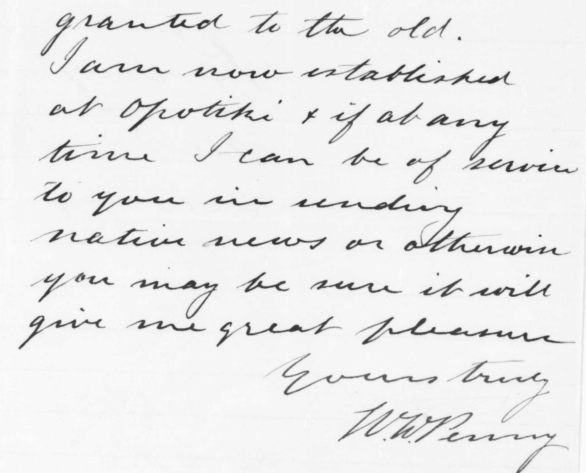 granted to the old.
I am now established
at Opotiki & if at any
time I can be of service
to you in sending
native news or otherwise
you may be sure it will
give me great pleasure
Yours truly
W. W. Penny